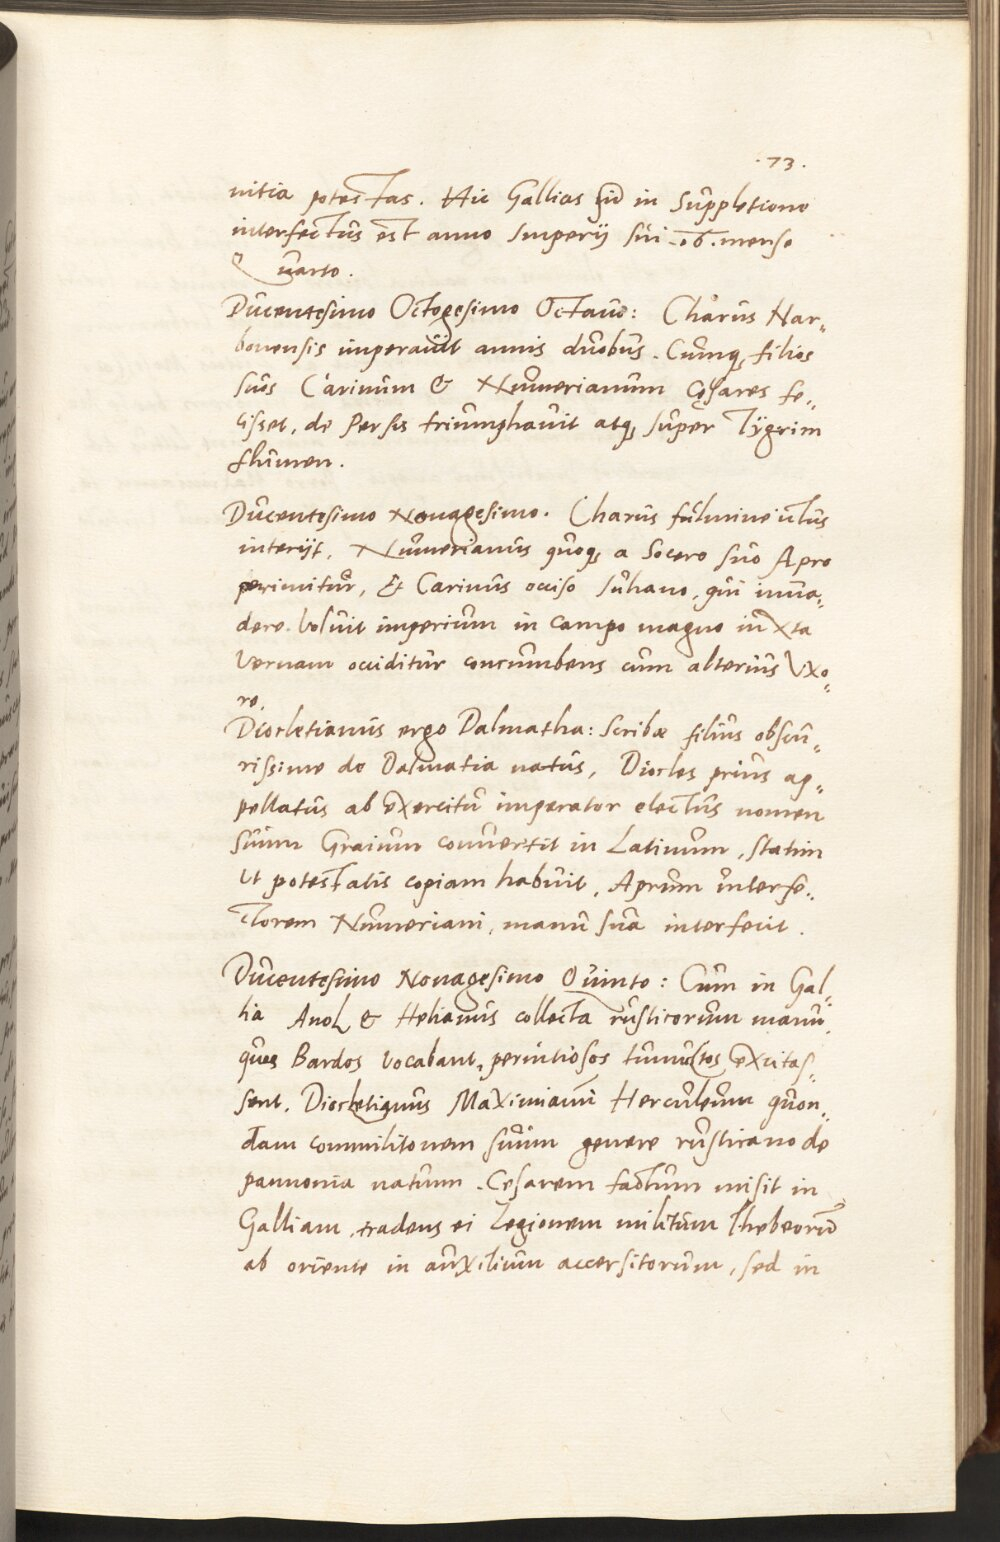 .73.
nitia potestas. Hic Gallias in Suppletione
interfectus est anno Imperij sui .06. mense
Quarto.
Ducentesimo Octogesimo Octavo: Charus Nar„
bonensis imperavit annis duobus. Cumq, filios
suos Carinum & Numerianum Cesares fe„
cisset, de Persis triumphavit atq, super Tÿgrim
flumen.
Ducentesimo Nonagesimo. Charus fulmine ictus
interijt. Numerianus quoq, a Socero suo Apro
perimitur, Et Carinus occiso Juliano, qui inva„
dere voluit imperium in campo magno iuxta
Vernam occiditur concumbens cum alterius Vxo„
re.
Diocletianus ergo Dalmatha: Scribæ filius obscu„
rissime de Dalmatia natus, Diocles prius ap„
pellatus ab exercitu imperator electus nomen
suum Graium convertit in Latinum, statim
ut potestatis copiam habuit, Aprum interfe„
ctorem Numeriani, manu sua interfecit.
Ducentesimo Nonagesimo Quinto: Cum in Gal„
lia & Helianus collecta rusticorum manu,
ques Bardos vocabant, pernitiosos tumultos excitas„
sent. Diocletianus Maximianum Herculeum quon„
dam commilitonem suum genere rusticano de
pannonia natum. Cesarem factum misit in
Galliam, tradens ei Legionem militum Thebeorum
ab oriente in auxilium accersitorum, sed in